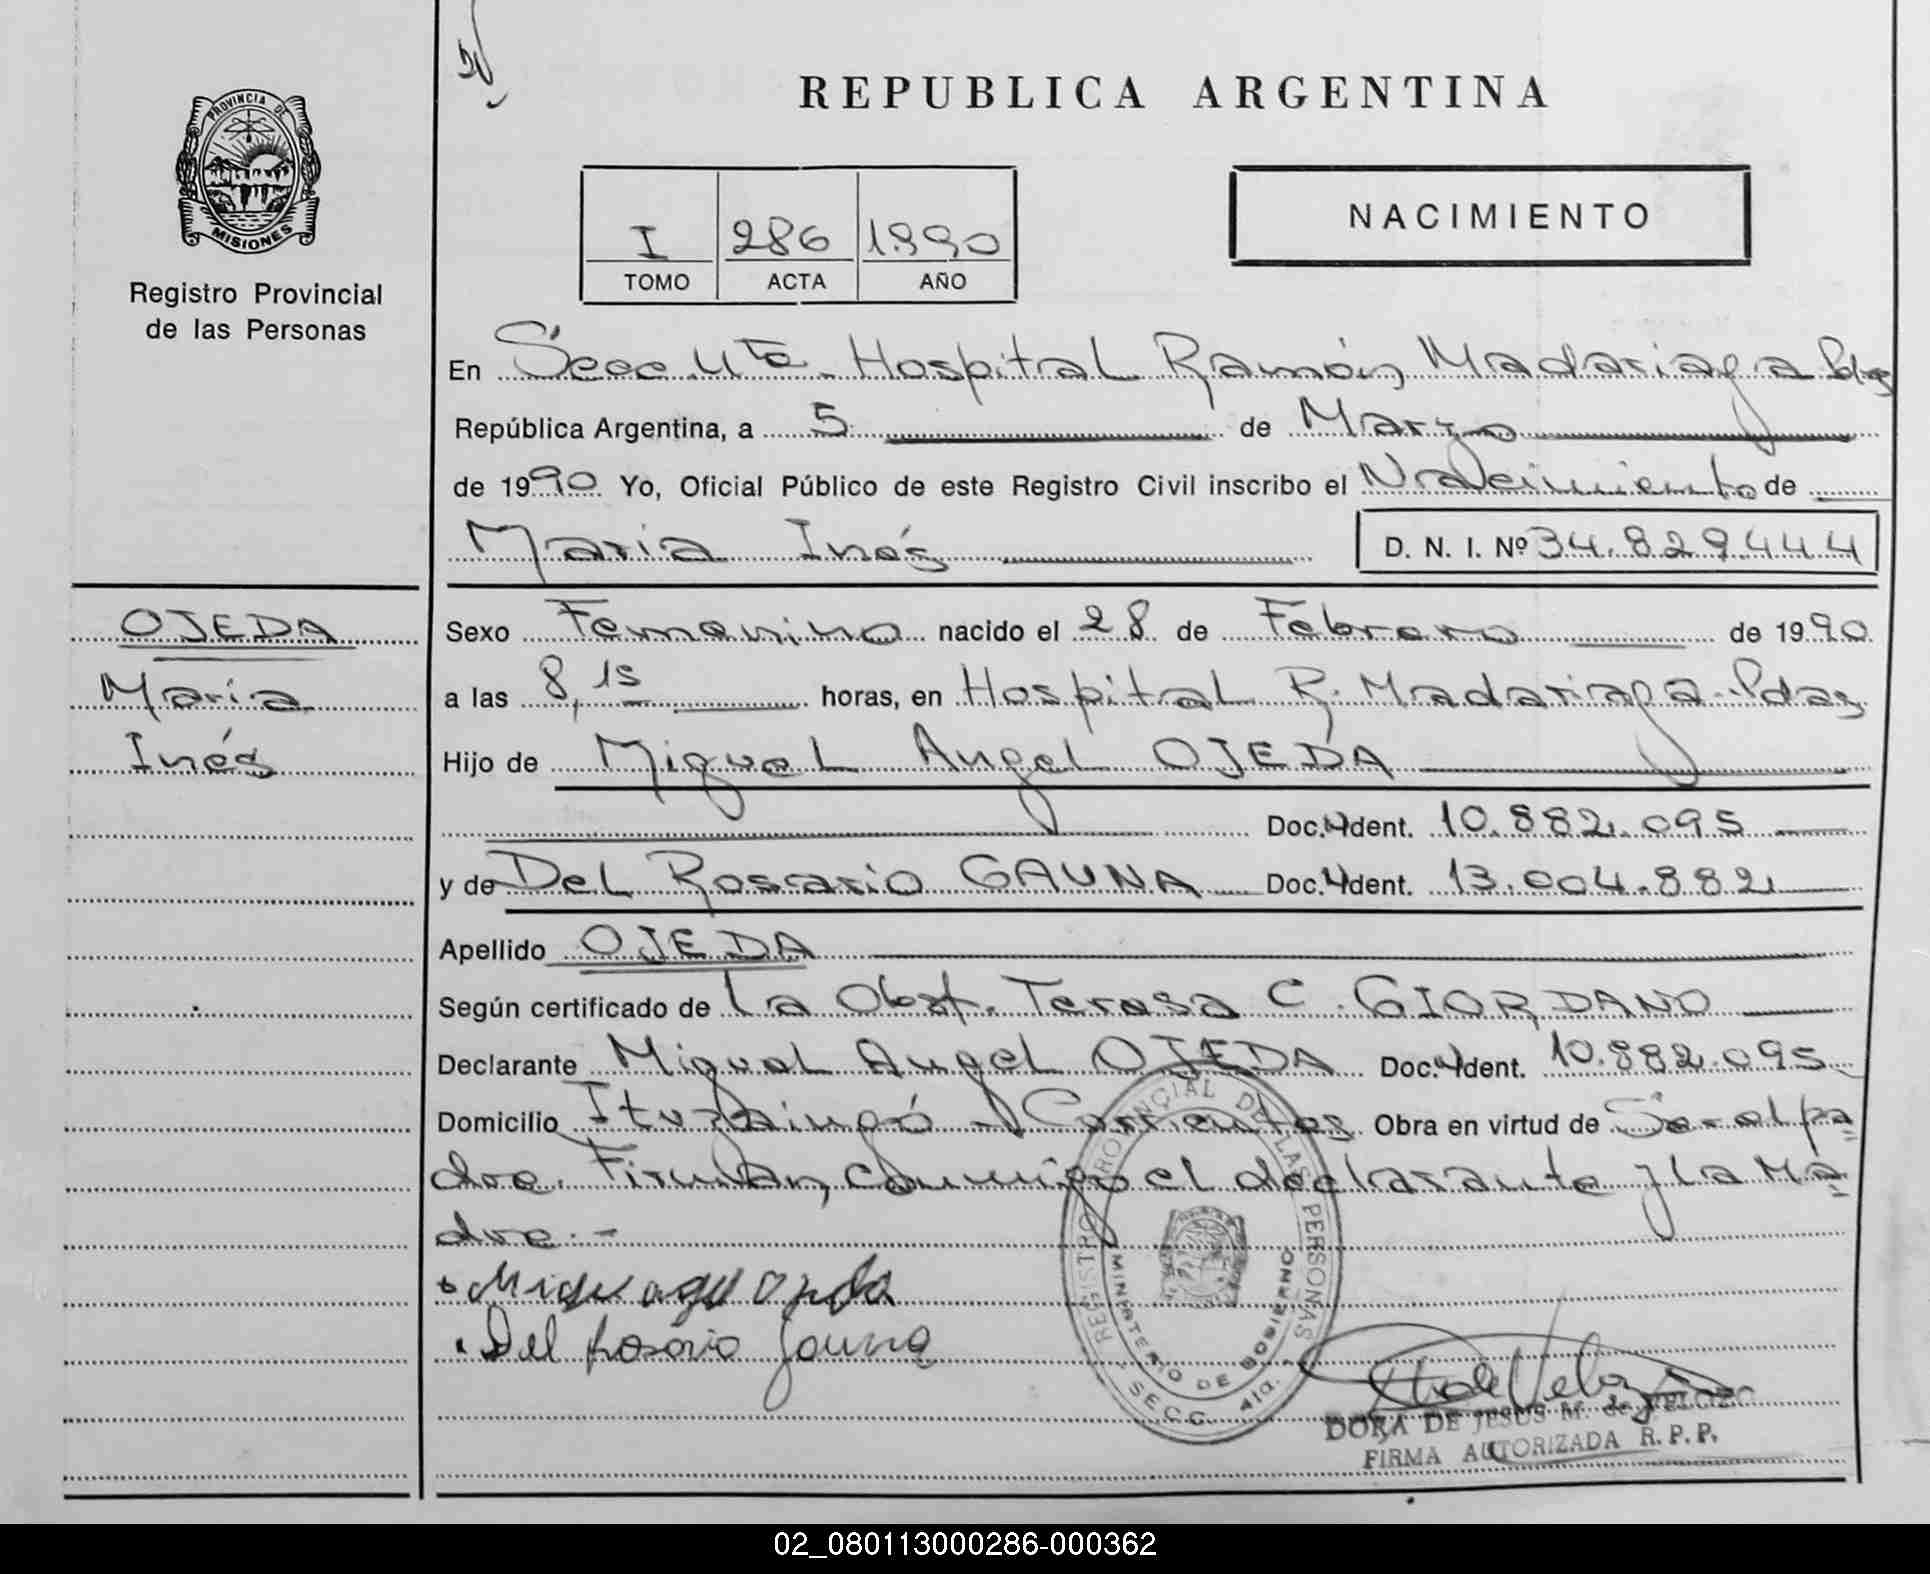 REPUBLICA ARGENTINA
PROVINCIA DE
MISIONES
Registro Provincial
de las Personas
I 286 1990
TOMO ACTA AÑO
NACIMIENTO
En Secc. 4ta. Hospital Ramón Madariaga Pdas
República Argentina, a 5 de Marzo
de 1990 Yo, Oficial Público de este Registro Civil inscribo el Nacimiento de
Maria Inés D. N. I. Nº 34.829.444
OJEDA
María
Inés
Sexo Femenino nacido el 28 de Febrero de 1990
a las 8,15 horas, en Hospital R. Madariaga-Pdas
Hijo de Miguel Angel OJEDA
Doc. Ident. 10.882.095
y de Del Rosario GAUNA Doc. Ident. 13.004.882
Apellido OJEDA
Según certificado de La Obst. Teresa C. GIORDANO
Declarante Miguel Angel OJEDA Doc. Ident. 10.882.095
Domicilio Ituzaingó - Corrientes Obra en virtud de Ser el pa
dre. Firman conmigo el declarante y la Ma
dre.-
Del Rosario Gauna
REGISTRO PROVINCIAL DE LAS PERSONAS
MINISTERIO DE GOBIERNO
SECC. 4ta.
DORA DE JESUS M. de VELOZO
FIRMA AUTORIZADA R.P.P.
02_080113000286-000362